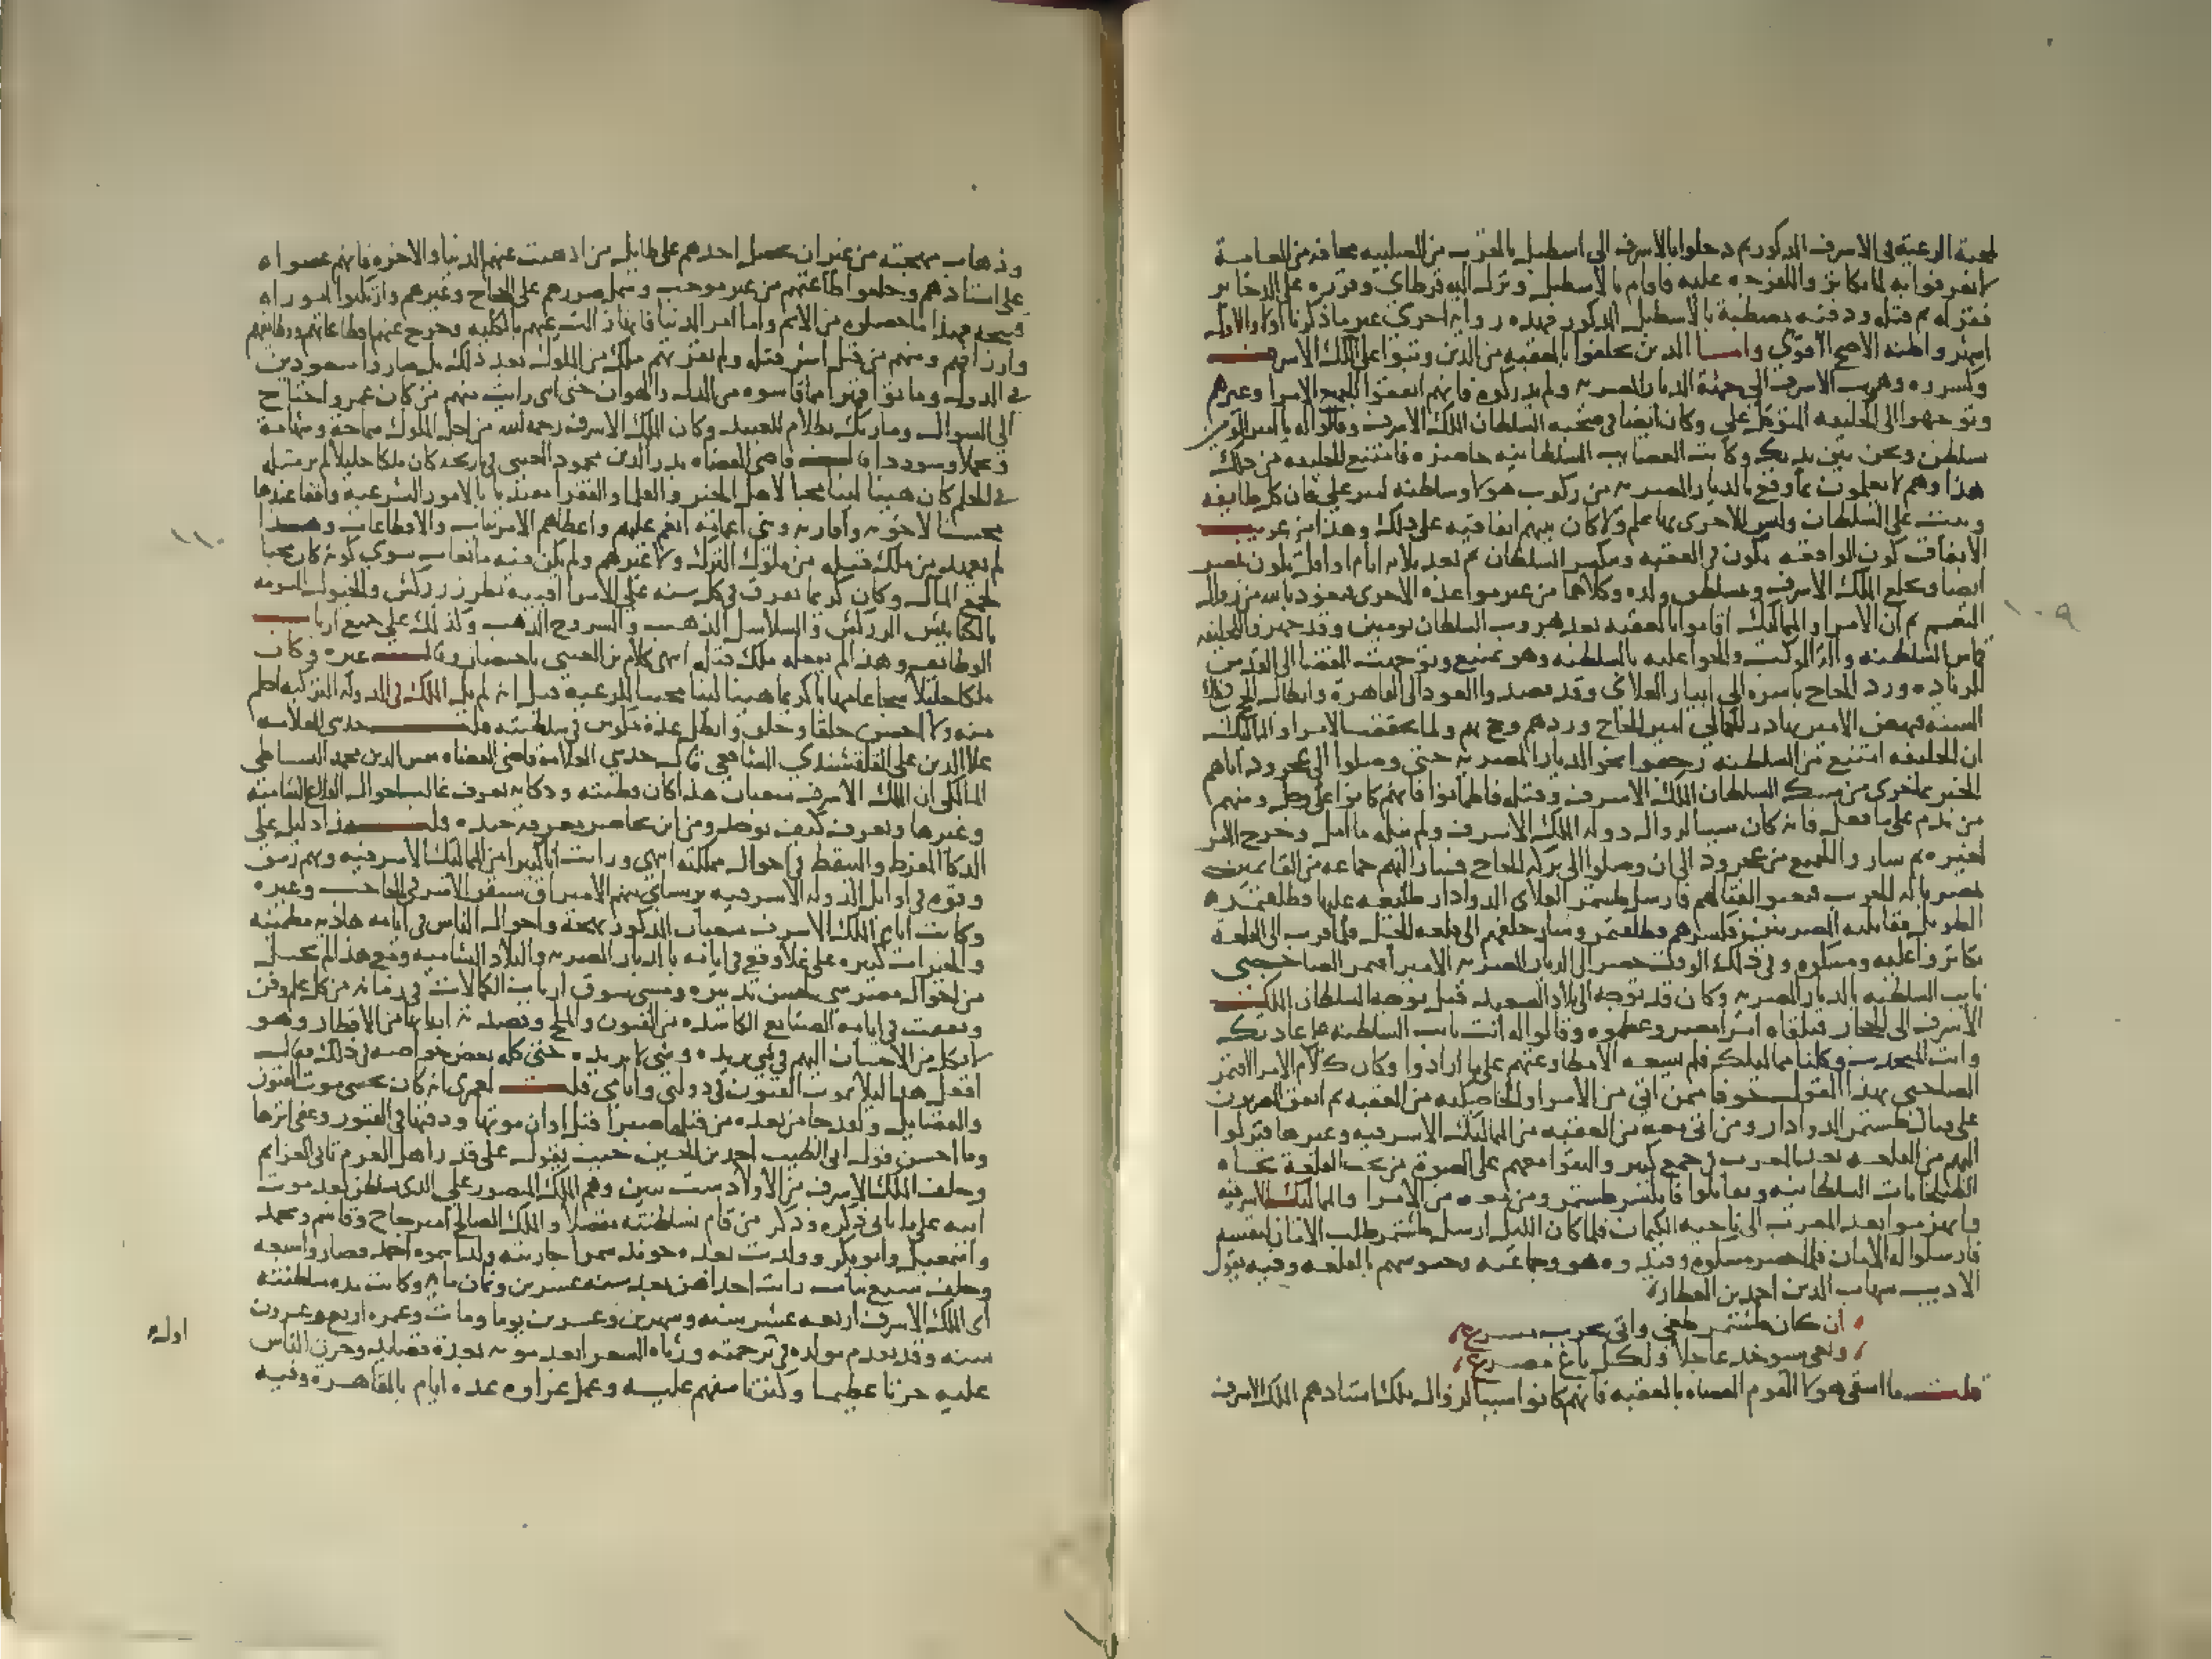 لمحبة الرعية في الاشرف المذكور ثم دخلوا بالاشرف الى اسطبل بالقرب من الصليبة مخافة من العامة
لا يعرفوا به لما يكاثروا للفرجة عليه فاقام بالاسطبل ونزل اليه قرطاي وقرره على الذخاير
فقرله ثم قتله ودفنه بمصطبة بالاسطبل المذكور فهذه رواية اخرى غير ما ذكرنا اولا والاول
اشهر واظنه الاصح والاقوى واما الذين تخلفوا بالعقبة من الذين وثبوا على الملك الاشرف
وكسروه وهرب الاشرف الى جهة الديار المصرية ولم يدركوه فانهم اتفقوا الجميع الامرا وغيرهم
وتوجهوا الى الخليفة المتوكل على وكان ايضا في صحبة السلطان الملك الاشرف وقالوا له يا امير المومنين
تسلطن ونحن بين يديك وكانت العصايب السلطانية حاضرة فامتنع الخليفة من ذلك
هذا وهم لا يعلمون بما وقع بالديار المصرية من ركوب هولا وسلطنة امير علي فان كل طايفة
وثبت على السلطان وليس للاخرى بها علم ولا كان بينهم اتفاقية على ذلك وهذا من غريب
الاتفاق كون الواقعة تكون في العقبة وينكسر السلطان ثم بعد ثلاثة ايام او اقل يكون بمصر
ايضا ويخلع الملك الاشرف ويتسلطن ولده وكلاهما من غير مواعدة الاخرى فنعوذ بالله من زوال
النعم ثم ان الامرا والمماليك اقاموا بالعقبة بعد هروب السلطان يومين وقد جهزوا للخليفة
قماش السلطنة والة الموكب والحوا عليه بالسلطنة وهو يمتنع وتوجهت القضاة الى القدس
للزيارة ورد الحاج باسره الى ابيار العلاي وقد قصدوا العود الى القاهرة وابطال الحج تلك
السنة فنهض الامير بهادر الجمالي امير الحاج وردهم وحج بهم ولما تحققت الامرا والمماليك
ان الخليفة امتنع من السلطنة رجعوا نحو الديار المصرية حتى وصلوا الى عجرود اتاهم
الخبر بما جرى من مسك السلطان الملك الاشرف وقتله فاطمانوا فانهم كانوا على وجل ومنهم
من ندم على ما فعل فانه كان سببا لزوال دولة الملك الاشرف ولم ينله ما امل وخرج الامر
لغيره ثم سار والجميع من عجرود الى ان وصلوا الى بركة الحاج فسار اليهم جماعة من القايمين
بمصر بالة الحرب فتعبوا لقتالهم فارسل طشتمر العلاي الدوادار طليعة عليها قطلقتمر
الطويل فقابلته المصريون فكسرهم قطلقتمر وسار خلفهم الى قلعة الجبل فلما قرب الى القلعة
تكاثروا عليه ومسكوه وفي ذلك الوقت حضر الى الديار المصرية الامير اقتمر الصاحبي
نايب السلطنة بالديار المصرية وكان قد توجه الى بلاد الصعيد قبل توجه السلطان الملك
الاشرف الى الحجاز فتلقاه امرا مصر وعظموه وقالوا له انت نايب السلطنة على عادتك
وانت المتحدث وكلنا مماليكك فلم يسعه الا مطاوعتهم على ما ارادوا وكان كلام الامرا لاقتمر
الصاحبي بهذا القول خوفا ممن اتى من الامرا والخاصكية من العقبة ثم اتفق المصريون
على قتال طشتمر الدوادار ومن اتى معه من العقبة من المماليك الاشرفية وغيرها فنزلوا
اليهم من القلعة بعد المغرب في جمع كبير والتقوا معهم على الصوة من تحت القلعة تجاه
الطبلخاناة السلطانية وتقاتلوا فانكسر طشتمر ومن معه من الامرا والمماليك الاشرفية
وانهزموا بعد المغرب الى ناحية الكيمان فلما كان الليل ارسل طشتمر طلب الامان لنفسه
فارسلوا له الامان فلما حضر مسكوه وقيدوه هو وجماعته وحبسوهم بالقلعة وفيه يقول
الاديب شهاب الدين احمد بن العطار
ان كان طشتمر طغى واتى بحرب مسرع
وبغى سيوخذ عاجلا ولكل باغ مصرع
قلت ما اشقى هولا القوم العصاة بالعقبة فانهم كانوا سببا لزوال ملك استاذهم الملك الاشرف
١٠٩
وذهاب مهجته من غير ان يحصل احدهم على طايل بل ذهبت عنهم الدنيا والاخرة فانهم عصوا
على استاذهم وخلعوا طاعتهم من غير موجب وشمل ضررهم على الحاج وغيرهم وارتكبوا امورا
قبيحة فهذا ما حصلوه من الاثم واما امر الدنيا فانها زالت عنهم بالكلية وخرج عنهم اقطاعاتهم ووظايفهم
وارزاقهم ومنهم من قتل اشر قتلة ولم يقربهم ملك من الملوك بعد ذلك بل صاروا مبعودين
في الدول وماتوا قهرا مما قاسوه من الذلة والهوان حتى اني رايت منهم من كان عمر واحتاج
الى السوال وما ربك بظلام للعبيد وكان الملك الاشرف رحمه الله من اجل الملوك سماحة وشهامة
وتجملا وسوددا قال قاضي القضاة بدر الدين محمود العيني في تاريخه كان ملكا جليلا لم ير مثله
في الحلم كان هينا لينا محبا لاهل الخير والعلما والفقرا مقتديا بالامور الشرعية واقفا عندها
محسنا لاخوته واقاربه وبني اعمامه انعم عليهم واعطاهم الامريات والاقطاعات وهذا
لم يعهد من ملك قبله من ملوك الترك ولا غيرهم ولم يكن فيه ما يعاب سوى كونه كان محبا
لجمع المال وكان كريما يفرق في كل سنة على الامرا اقبية بطرز زركش والخيول المسومة
بالكنابيش الزركش والسلاسل الذهب والسروج الذهب وكذلك على جميع ارباب
الوظايف وهذا لم يفعله ملك قبله انتهى كلام العيني باختصار وقال غيره وكان
ملكا جليلا شجاعا مهابا كريما هينا لينا محببا للرعية قيل انه لم يل الملك في الدولة التركية احلم
منه ولا احسن خلقا وخلقا وابطل عدة مكوس في سلطنته قلت حدثني العلامة
علا الدين علي القلقشندي الشافعي قال حدثني العلامة قاضي القضاة شمس الدين محمد البساطي
المالكي ان الملك الاشرف شعبان هذا كان فطنته وذكاه يعرف غالب احوال القلاع الشامية
وغيرها ويعرف كيف توخذ ومن اين تحاصر معرفة جيدة قلت هذا دليل على
الذكا المفرط والتيقظ في احوال مملكته انتهى ورايت انا كثيرا من المماليك الاشرفية وبهم رمق
وقوة في اوايل الدولة الاشرفية برسباي منهم الامير اق سنقر الاشرفي الحاجب وغيره
وكانت ايام الملك الاشرف شعبان المذكور بهجة واحوال الناس في ايامه هادية مطمينة
والخيرات كثيرة على غلا وقع في ايامه بالديار المصرية والبلاد الشامية ومع هذا لم يختل
من احوال مصر شي لحسن تدبيره ومشى سوق ارباب الكمالات في زمانه من كل علم وفن
ونفقت في ايامه البضايع الكاسدة من الفنون والملح وقصدته اربابها من الاقطار وهو
لا يكل من الاحسان اليهم في شي يريده وشي لا يريده حتى كلمه بعض خواصه في ذلك فقال
افعل هذا ليلا تموت الفنون في دولتي وايامي قلت لعمري انه كان يخشى موت الفنون
والفضايل ولقد جا من بعده من قتلها صبرا قبل اوان موتها ودفنها في القبور وعفى اثرها
وما احسن قول ابي الطيب احمد بن الحسين حيث يقول على قدر اهل العزم تاتي العزايم
وخلف الملك الاشرف من الاولاد ست بنين وهم الملك المنصور علي الذي تسلطن بعد موت
ابيه على ما ياتي ذكره وذكر من قام بسلطنته مفصلا والملك الصالح امير حاج وقاسم ومحمد
واسمعيل وابو بكر وولدت بعده خوند سمرا جاريته ولدا سموه احمد فصاروا سبعة
وخلف سبع بنات رايت احداهن بعد سنة عشرين وثمان ماية وكانت مدة سلطنته
اي الملك الاشرف اربعة عشر سنة وشهرين وعشرين يوما ومات وعمره اربع وعشرون
سنة وقد تقدم مولده في ترجمته ورثاه الشعرا بعد موته بعدة قصايد وحزن الناس
عليه حزنا عظيما وكثر تاسفهم عليه وعمل عزاوه عدة ايام بالقاهرة وفيه
١١٠
اوله